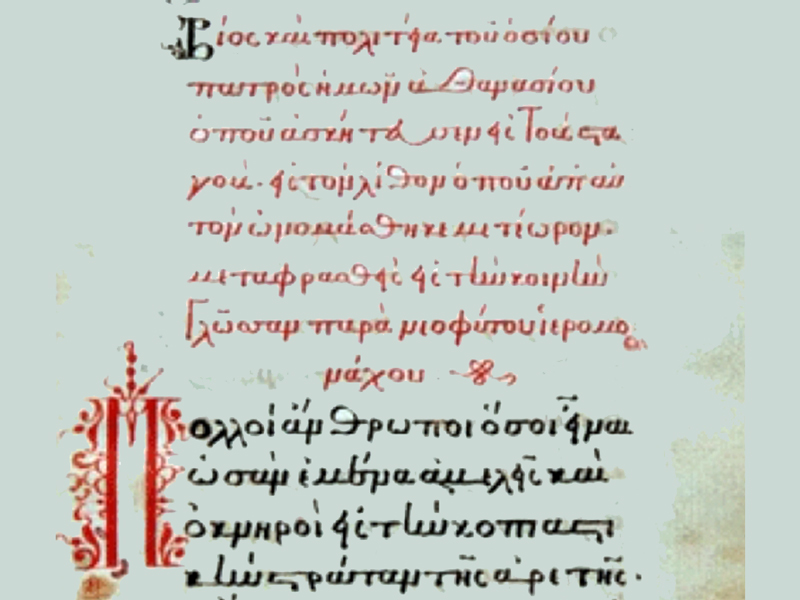 Βίος καὶ πολιτεία τοῦ ὁσίου
πατρὸς ἡμῶν ἀθανασίου
ὁποῦ ἀσκήτευεν εἰς τοὺς στα
γοὺς. εἰς τὸν λίθον ὁποῦ ἀπ' αὐ
τὸν ὠνομάσθηκε μετέωρον.
μεταφρασθεὶς εἰς τὴν κοινὴν
Γλῶσσαν παρὰ νεοφύτου ἱερομο
νάχου
Πολλοὶ ἄνθρωποι ὅσοι εἶναι
ὡσὰν ἐμένα ἀμελεῖς καὶ
ὀκνηροὶ εἰς τὴν κοπιαστι
κὴν στράταν τῆς ἀρετῆς.